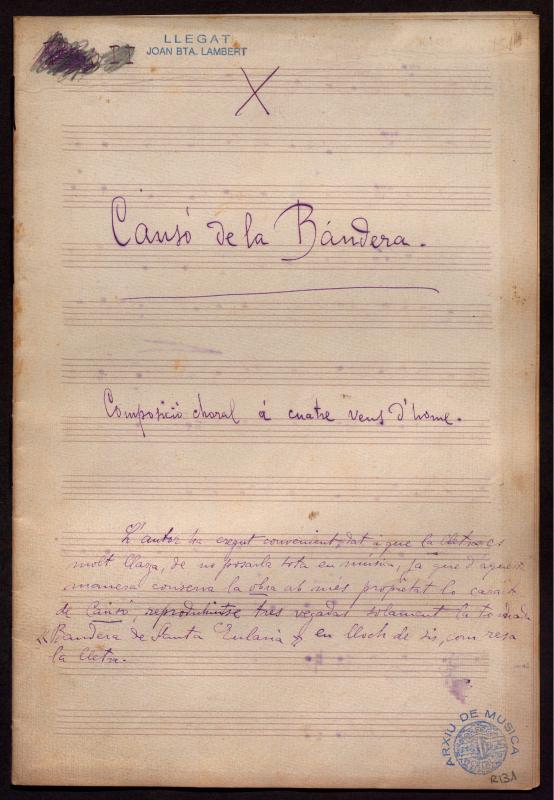 LLEGAT
JOAN BTA. LAMBERT
X
Cansó de la Bandera.
Composició choral á cuatre veus d'home.
L'autor ha cregut convenient, dat á que la lletra es
molt llarga, de no posarla tota en música, ja que d'aquesta
manera conserva la obra ab més propietat lo caracter
de Cansó, reproduhintse tres vegadas solament la tonada
"Bandera de Santa Eularia" en lloch de sis, com resa
la lletra.
ARXIU DE MUSICA
R131